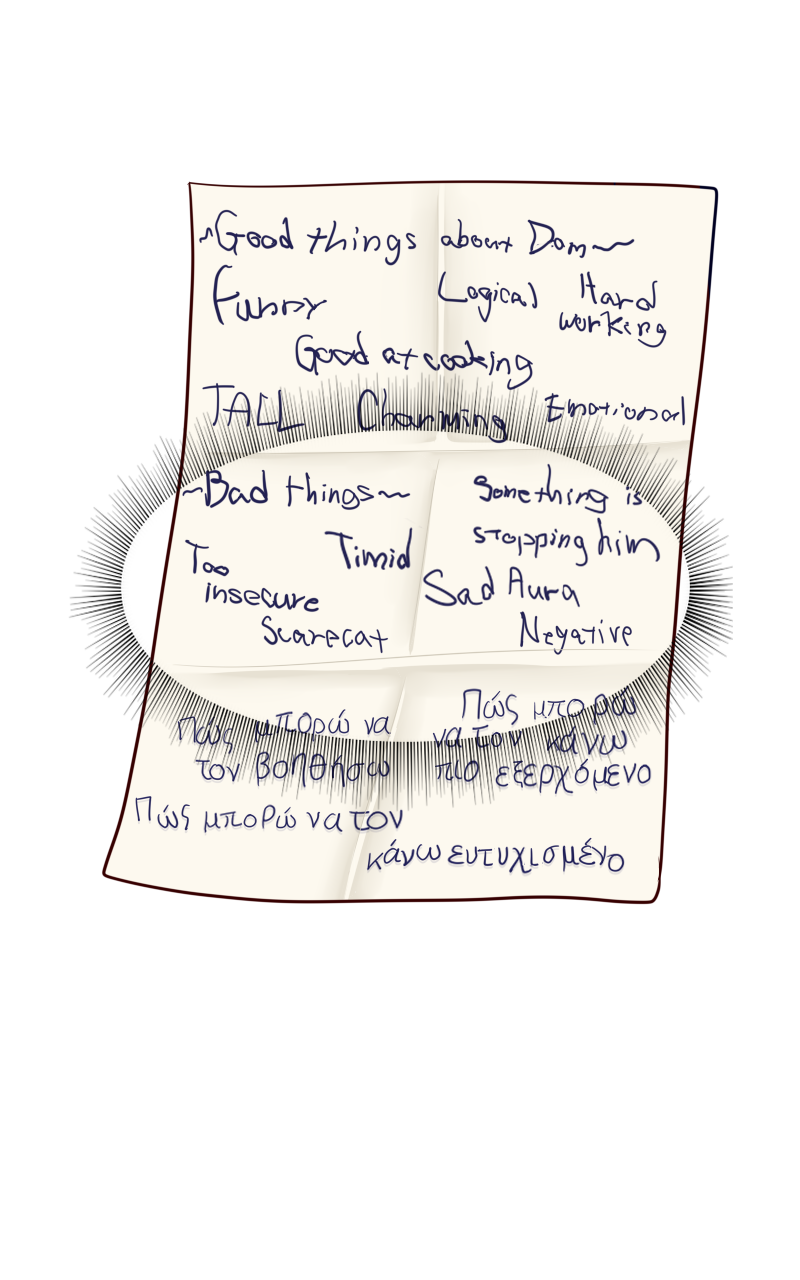 ~Good things about Dom~
Funny Logical Hard working
Good at cooking
TALL Charming Emotional
~Bad things~
Timid
Too insecure
Scarecat
Something is
stopping him
Sad Aura
Negative
Πώς μπορώ να
τον βοηθήσω
Πώς μπορώ
να τον κάνω
πιο εξερχόμενο
Πώς μπορώ να τον
κάνω ευτυχισμένο